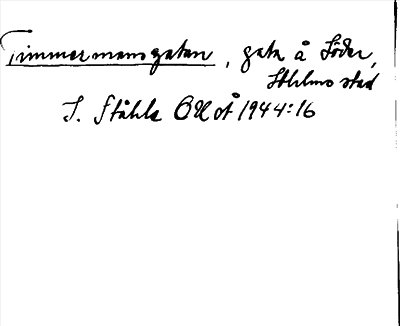 Timmermansgatan, gata å Söder,
Sthlms stad
S. Ståhle
1944:16